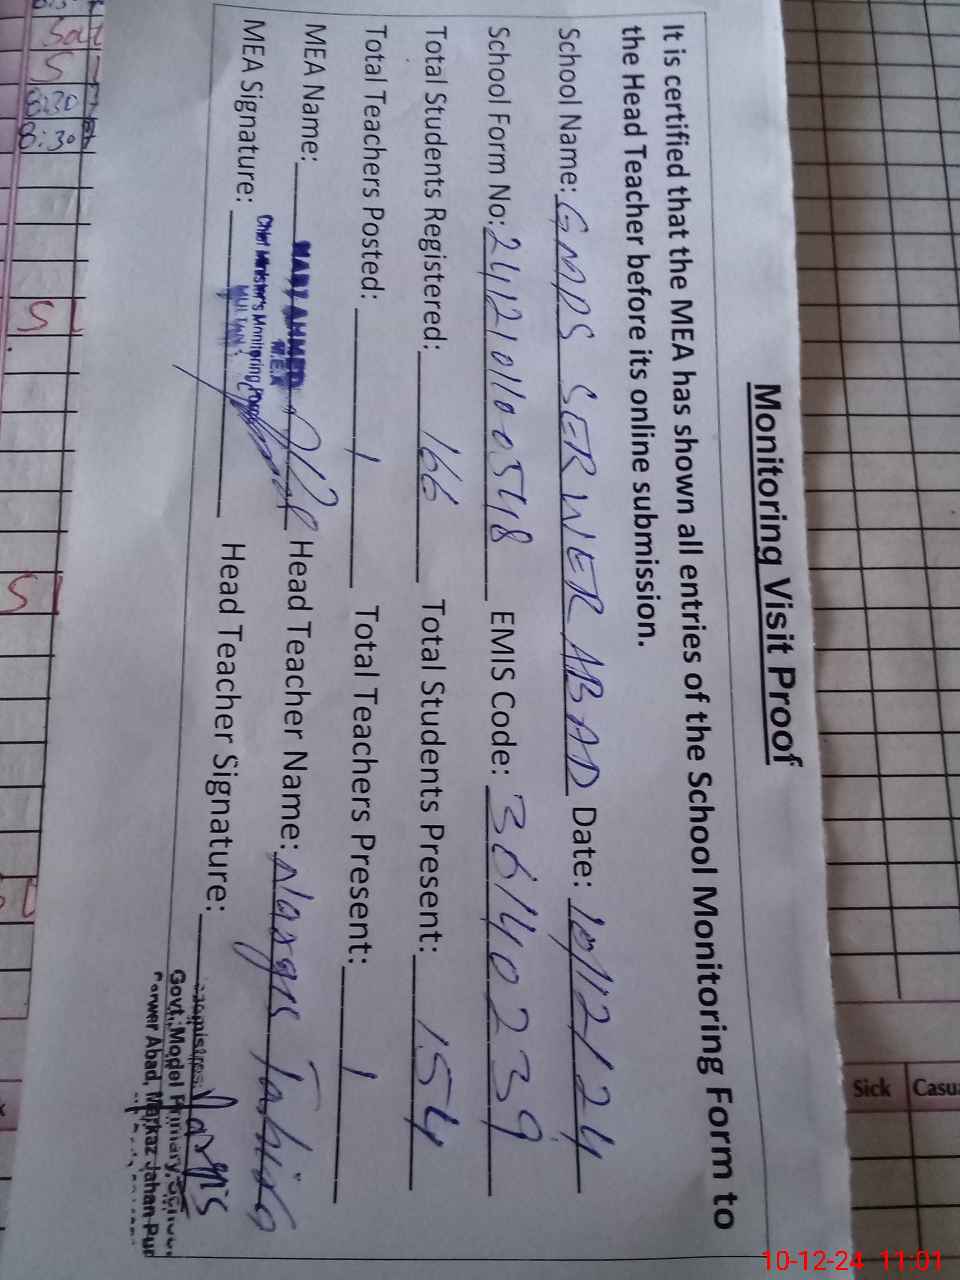 Monitoring Visit Proof
It is certified that the MEA has shown all entries of the School Monitoring Form to
the Head Teacher before its online submission.
School Name: GMPS SERWER ABAD Date: 10/12/24
School Form No: 2412101100548 EMIS Code: 36140239
Total Students Registered: 166 Total Students Present: 154
Total Teachers Posted: 1 Total Teachers Present: 1
MEA Name: AHMED M.E.A Head Teacher Name: Narges Tahira
MEA Signature: Chief Minister's Monitoring Force MULTAN Head Teacher Signature: Narges
Govt. Model Primary School
Abad, Markaz Jahan Pur
Sat
S
8:30
8:30
S
S
Sick Casu
10-12-24 11:01